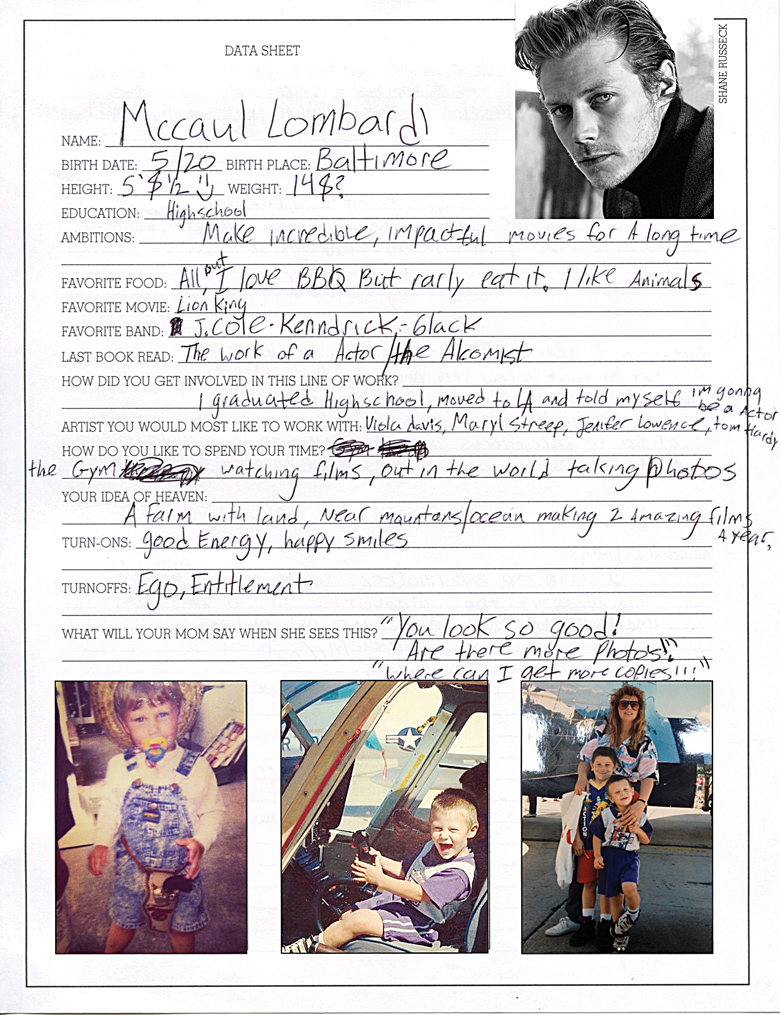 DATA SHEET
SHANE RUSSECK
NAME: Mccaul Lombardi
BIRTH DATE: 5/20 BIRTH PLACE: Baltimore
HEIGHT: WEIGHT:
EDUCATION: Highschool
AMBITIONS: Make incredible, impactful movies for A long time
FAVORITE FOOD: All, but I love BBQ But rarly eat it. I like Animals
FAVORITE MOVIE: Lion King
FAVORITE BAND: J.Cole - Kenndrick - 6lack
LAST BOOK READ: The work of a Actor/the Alcomist
HOW DID YOU GET INVOLVED IN THIS LINE OF WORK?
I graduated Highschool, moved to LA and told myself im gonna be a Actor
ARTIST YOU WOULD MOST LIKE TO WORK WITH: Viola davis, Maryl Streep, Jenifer Lowence, tom Hardy
HOW DO YOU LIKE TO SPEND YOUR TIME?
the Gym watching films, out in the world taking photos
YOUR IDEA OF HEAVEN:
A farm with land, Near mountans/ocean making 2 Amazing films A year,
TURN-ONS: good Energy, happy smiles
TURNOFFS: Ego, Entitlement
WHAT WILL YOUR MOM SAY WHEN SHE SEES THIS? "You look so good!
Are there more photo's!"
"where can I get more copies!!!"